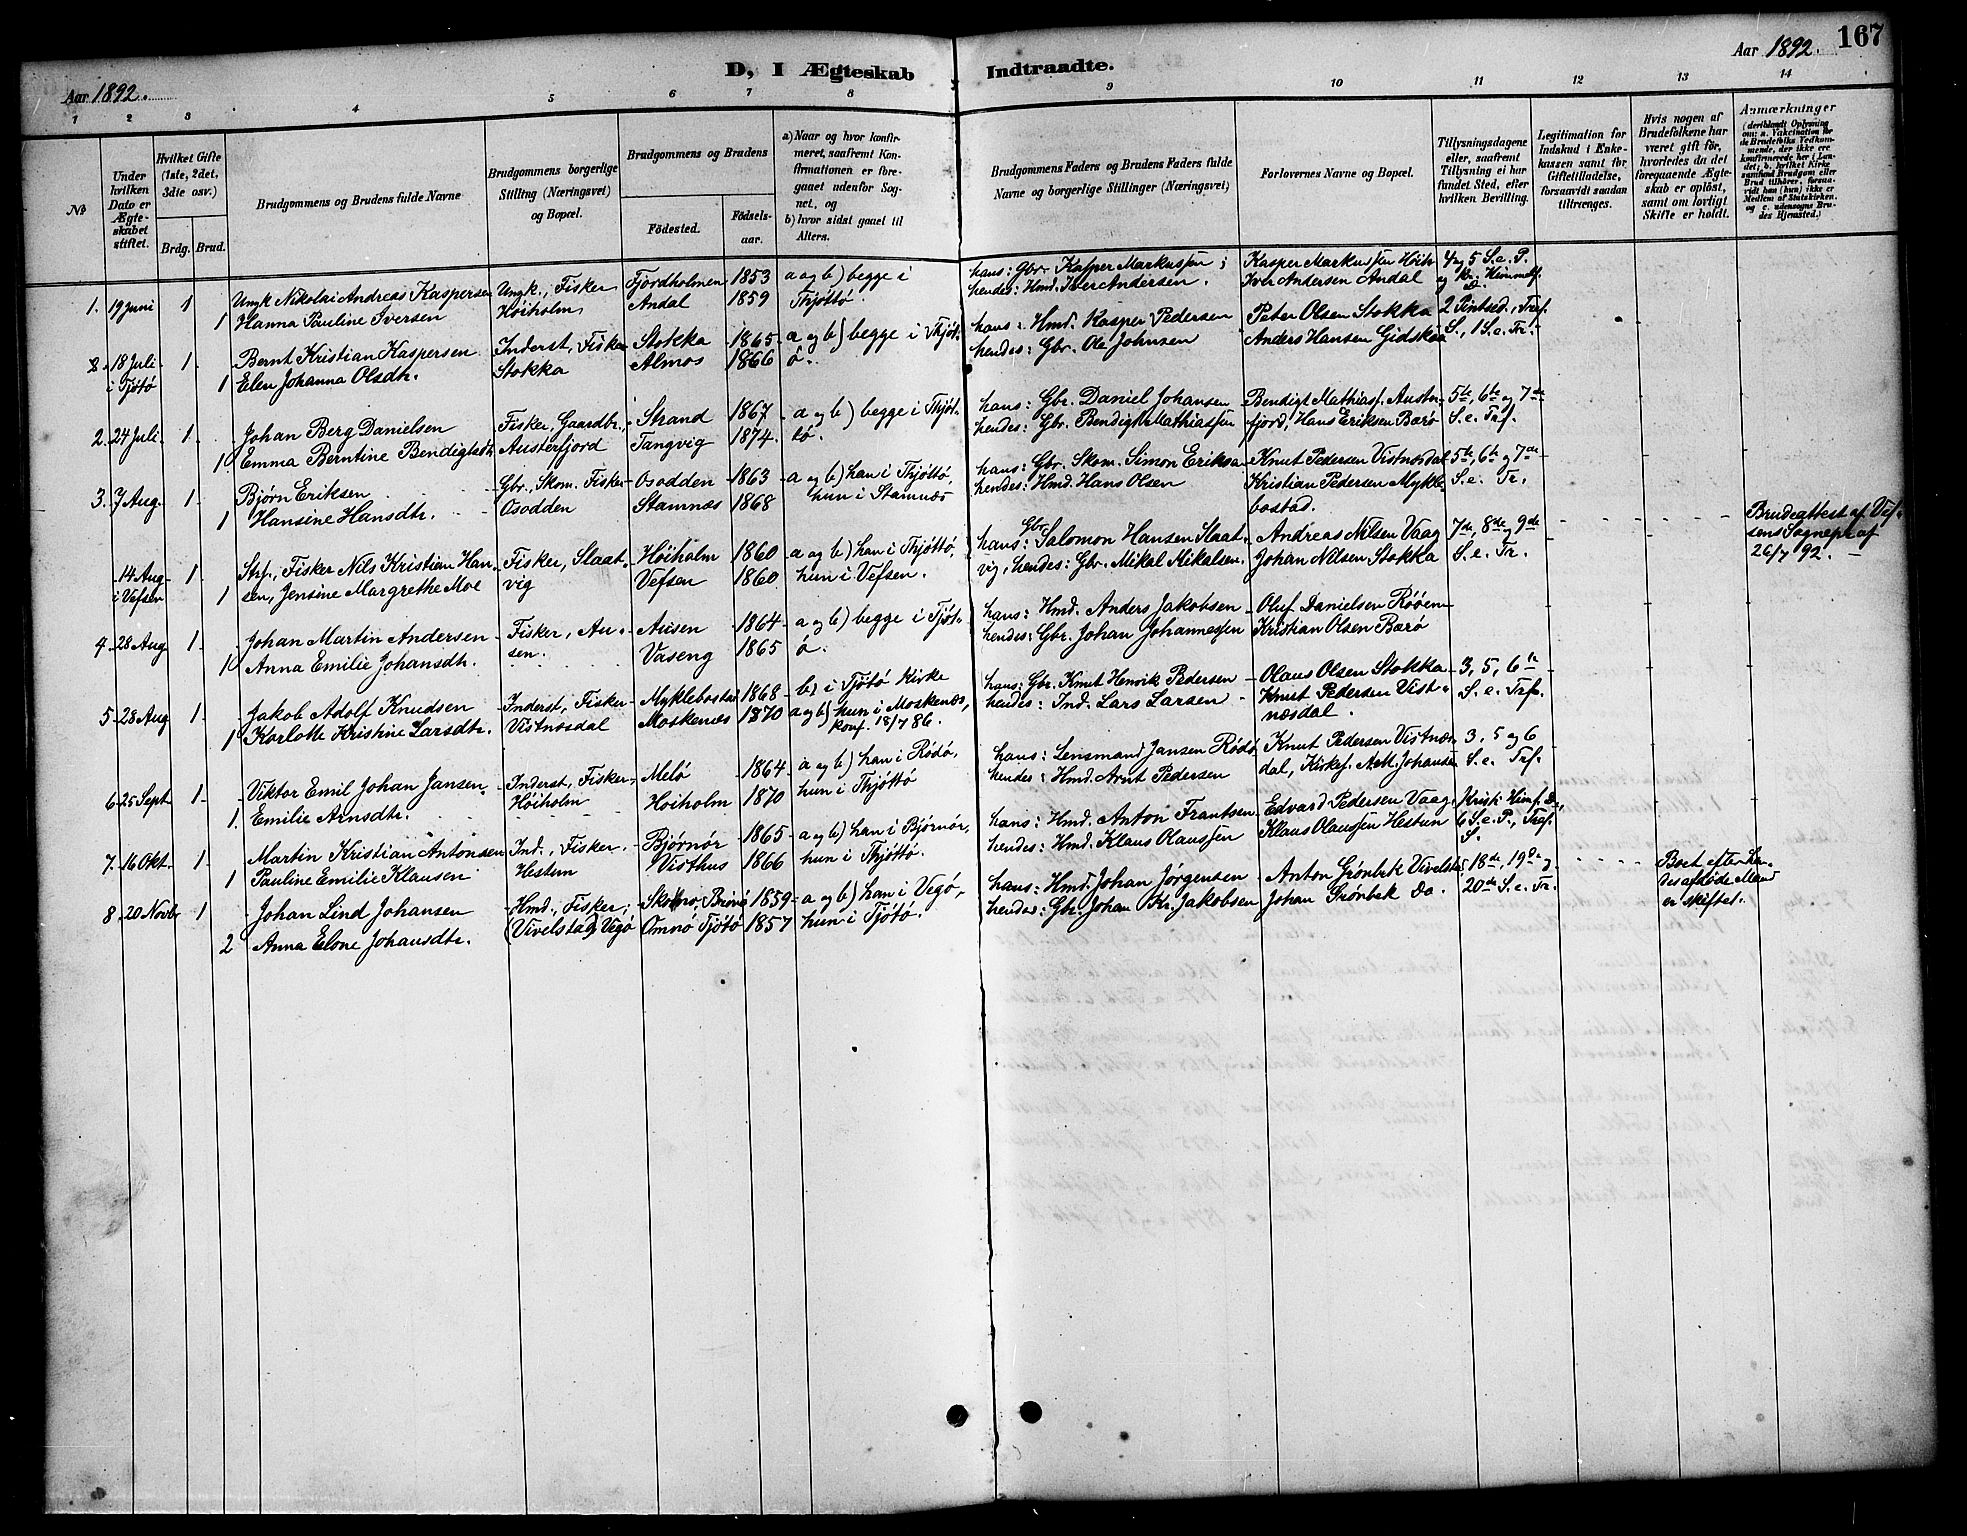 167
Aar 1892.
D, I Ægteskab Indtraadte.
Aar 1892.
1 2 3 4 5 6 7 8 9 10 11 12 13 14
No
Under hvilken Dato er Ægteskabet stiftet.
Hvilket Gifte (1ste, 2det, 3die osv.)
Brdg. Brud.
Brudgommens og Brudens fulde Navne
Brudgommens borgerlige Stilling (Næringsvei) og Bopæl.
Brudgommens og Brudens
Fødested. Fødselsaar.
a) Naar og hvor konfirmeret, saafremt Konfirmationen er foregaaet udenfor Sognet, og
b) hvor sidst gaaet til Alters.
Brudgommens Faders og Brudens Faders fulde Navne og borgerlige Stillinger (Næringsvei)
Forlovernes Navne og Bopæl.
Tillysningsdagene eller, saafremt Tillysning ei har fundet Sted, efter hvilken Bevilling.
Legitimation for Indskud i Enkekassen samt for Giftetilladelse, forsaavidt saadan tiltrænges.
Hvis nogen af Brudefolkene har været gift før, hvorledes da det foregaaende Ægteskab er opløst, samt om lovligt Skifte er holdt.
Anmærkninger (deriblandt Oplysning om: a. Vakcination for de Brudefolks Vedkommende, der ikke ere konfirmerede her i Landet; b. hvilket Kirkesamfund Brudgom eller Brud tilhører, forsaavidt han (hun) ikke er Medlem af Statskirken, og c. udensogns Brudes Hjemsted.)
1. 19 Juni 1 Ungk Nikolai Andreas Kaspersen Ungk., Fisker Fjordholmen 1853 a og b) begge i hans: Gbr. Kasper Markussen; Kasper Markussen Høih. 4 og 5 S. e. P.
1 Hanna Pauline Iversen Høiholm Andal 1859 Thjøttø. hendes: Hmd. Iver Andersen. Iver Andersen Andal og Kr. Himmelf. D.
2. 18 Juli 1. Bernt Kristian Kaspersen Inderst, Fisker Stokka 1865 a og b) begge i Thjøt- hans: Hmd. Kasper Pedersen Peter Olsen Stokka 2 Pintsed., Tref.
i Tjøtø 1 Elen Johanna Olsdtr. Stokka Almos 1866 ø. hendes: Gbr. Ole Johnsen Anders Hansen Gidskaa S., 1 S. e. Tr.
2. 24 Juli 1. Johan Berg Danielsen Fisker, Gaardbr., Strand 1867 a og b) begge i Thjøt- hans: Gbr. Daniel Johansen Bendigt Mathiasf. Auster- 5te, 6te og 7de
1 Emma Berntine Bendigtsdtr Austerfjord Tangvig 1874. tø. hendes: Gbr. Bendigt Mathiassen fjord, Hans Eriksen Barø S. e. Trf.
3. 7 Aug. 1. Bjørn Eriksen Gbr., Skom. Fisker Osodden 1863 a og b) han i Thjøttø, hans: Gbr. Skom. Simon Eriksen Knut Pedersen Vistnæsdal 5te, 6te og 7de
1 Hansine Hansdtr. Osodden Stamnæs 1868 hun i Stamnæs hendes: Hmd. Hans Olsen Kristian Pedersen Mykle- S. e. Tr.
bostad.
14 Aug 1 Strf., Fisker Nils Kristian Han- Fisker, Slaat- Høiholm 1860 a og b) han i Thjøttø, hans: Gbr. Salomon Hansen Slaat- Andreas Nilsen Vaag 7de, 8de og 9de Brudeattest af Vef-
i Vefsen 1 sen, Jensine Margrethe Moe vig Vefsen 1860 hun i Vefsen. vig, hendes: Gbr. Mikal Mikalsen. Johan Nilsen Stokka S. e. Tr. sens Sognepr. af
26/7 92.
4 28 Aug 1. Johan Martin Andersen Fisker, Au- Ausen 1864 a og b) begge i Tjøt- hans: Hmd. Anders Jakobsen Oluf Danielsen Røøen
1 Anna Emilie Johansdtr. sen. Vaseng 1865 ø. hendes: Gbr. Johan Johannessen Kristian Olsen Barø
5 28 Aug 1. Jakob Adolf Knudsen Inderst, Fisker Myklebostad 1868 b) i Tjøtø Kirke hans: Gbr. Knut Henrik Pedersen Olaus Olsen Stokka 3, 5, 6te
1 Karlotte Kristine Larsdtr. Vistnæsdal Moskenæs 1870 a og b) hun i Moskenæs, konf. 18/7 86. hendes: Ind. Lars Larsen Knut Pedersen Vist- S. e. Trf.
næsdal.
6 25 Sept 1 Viktor Emil Johan Jansen Inderst, Fisker Melø 1864 a og b) han i Rødø, hans: Lensmand Jansen Rødø Knut Pedersen Vistnæs- 3, 5 og 6
1. Emilie Arnsdtr. Høiholm Høiholm 1870 hun i Thjøttø hendes: Hmd. Arnt Pedersen dal, Kirkef. A.M. Johansen S. e. Trf.
7. 16 Okt. 1 Martin Kristian Antonsen Ind., Fisker Bjørnør 1865 a og b) han i Bjørnør, hans: Hmd. Anton Frantsen Edvard Pedersen Vaag Krist. Himf. D.,
1 Pauline Emilie Klausen Hestun Visthus 1866 hun i Thjøttø. hendes: Hmd. Klaus Olaussen Klaus Olaussen Hestun 6 S. e. P., Tref. S.
8 20 Novbr 1 Johan Lind Johansen Hmd., Fisker; Brønø 1859 a og b) han i Vegø, hans: Hmd. Johan Jørgensen Anton Grønbek Vivelstad 18de, 19de og Boet efter hen-
2 Anna Elone Johansdtr. (Vivelstad) Vegø Omnø Tjøtø 1857 hun i Tjøtø. hendes: Gbr. Johan Kr. Jakobsen Johan Grønbek Do. 20de S. e. Tr. des afdøde Mand
er skiftet.